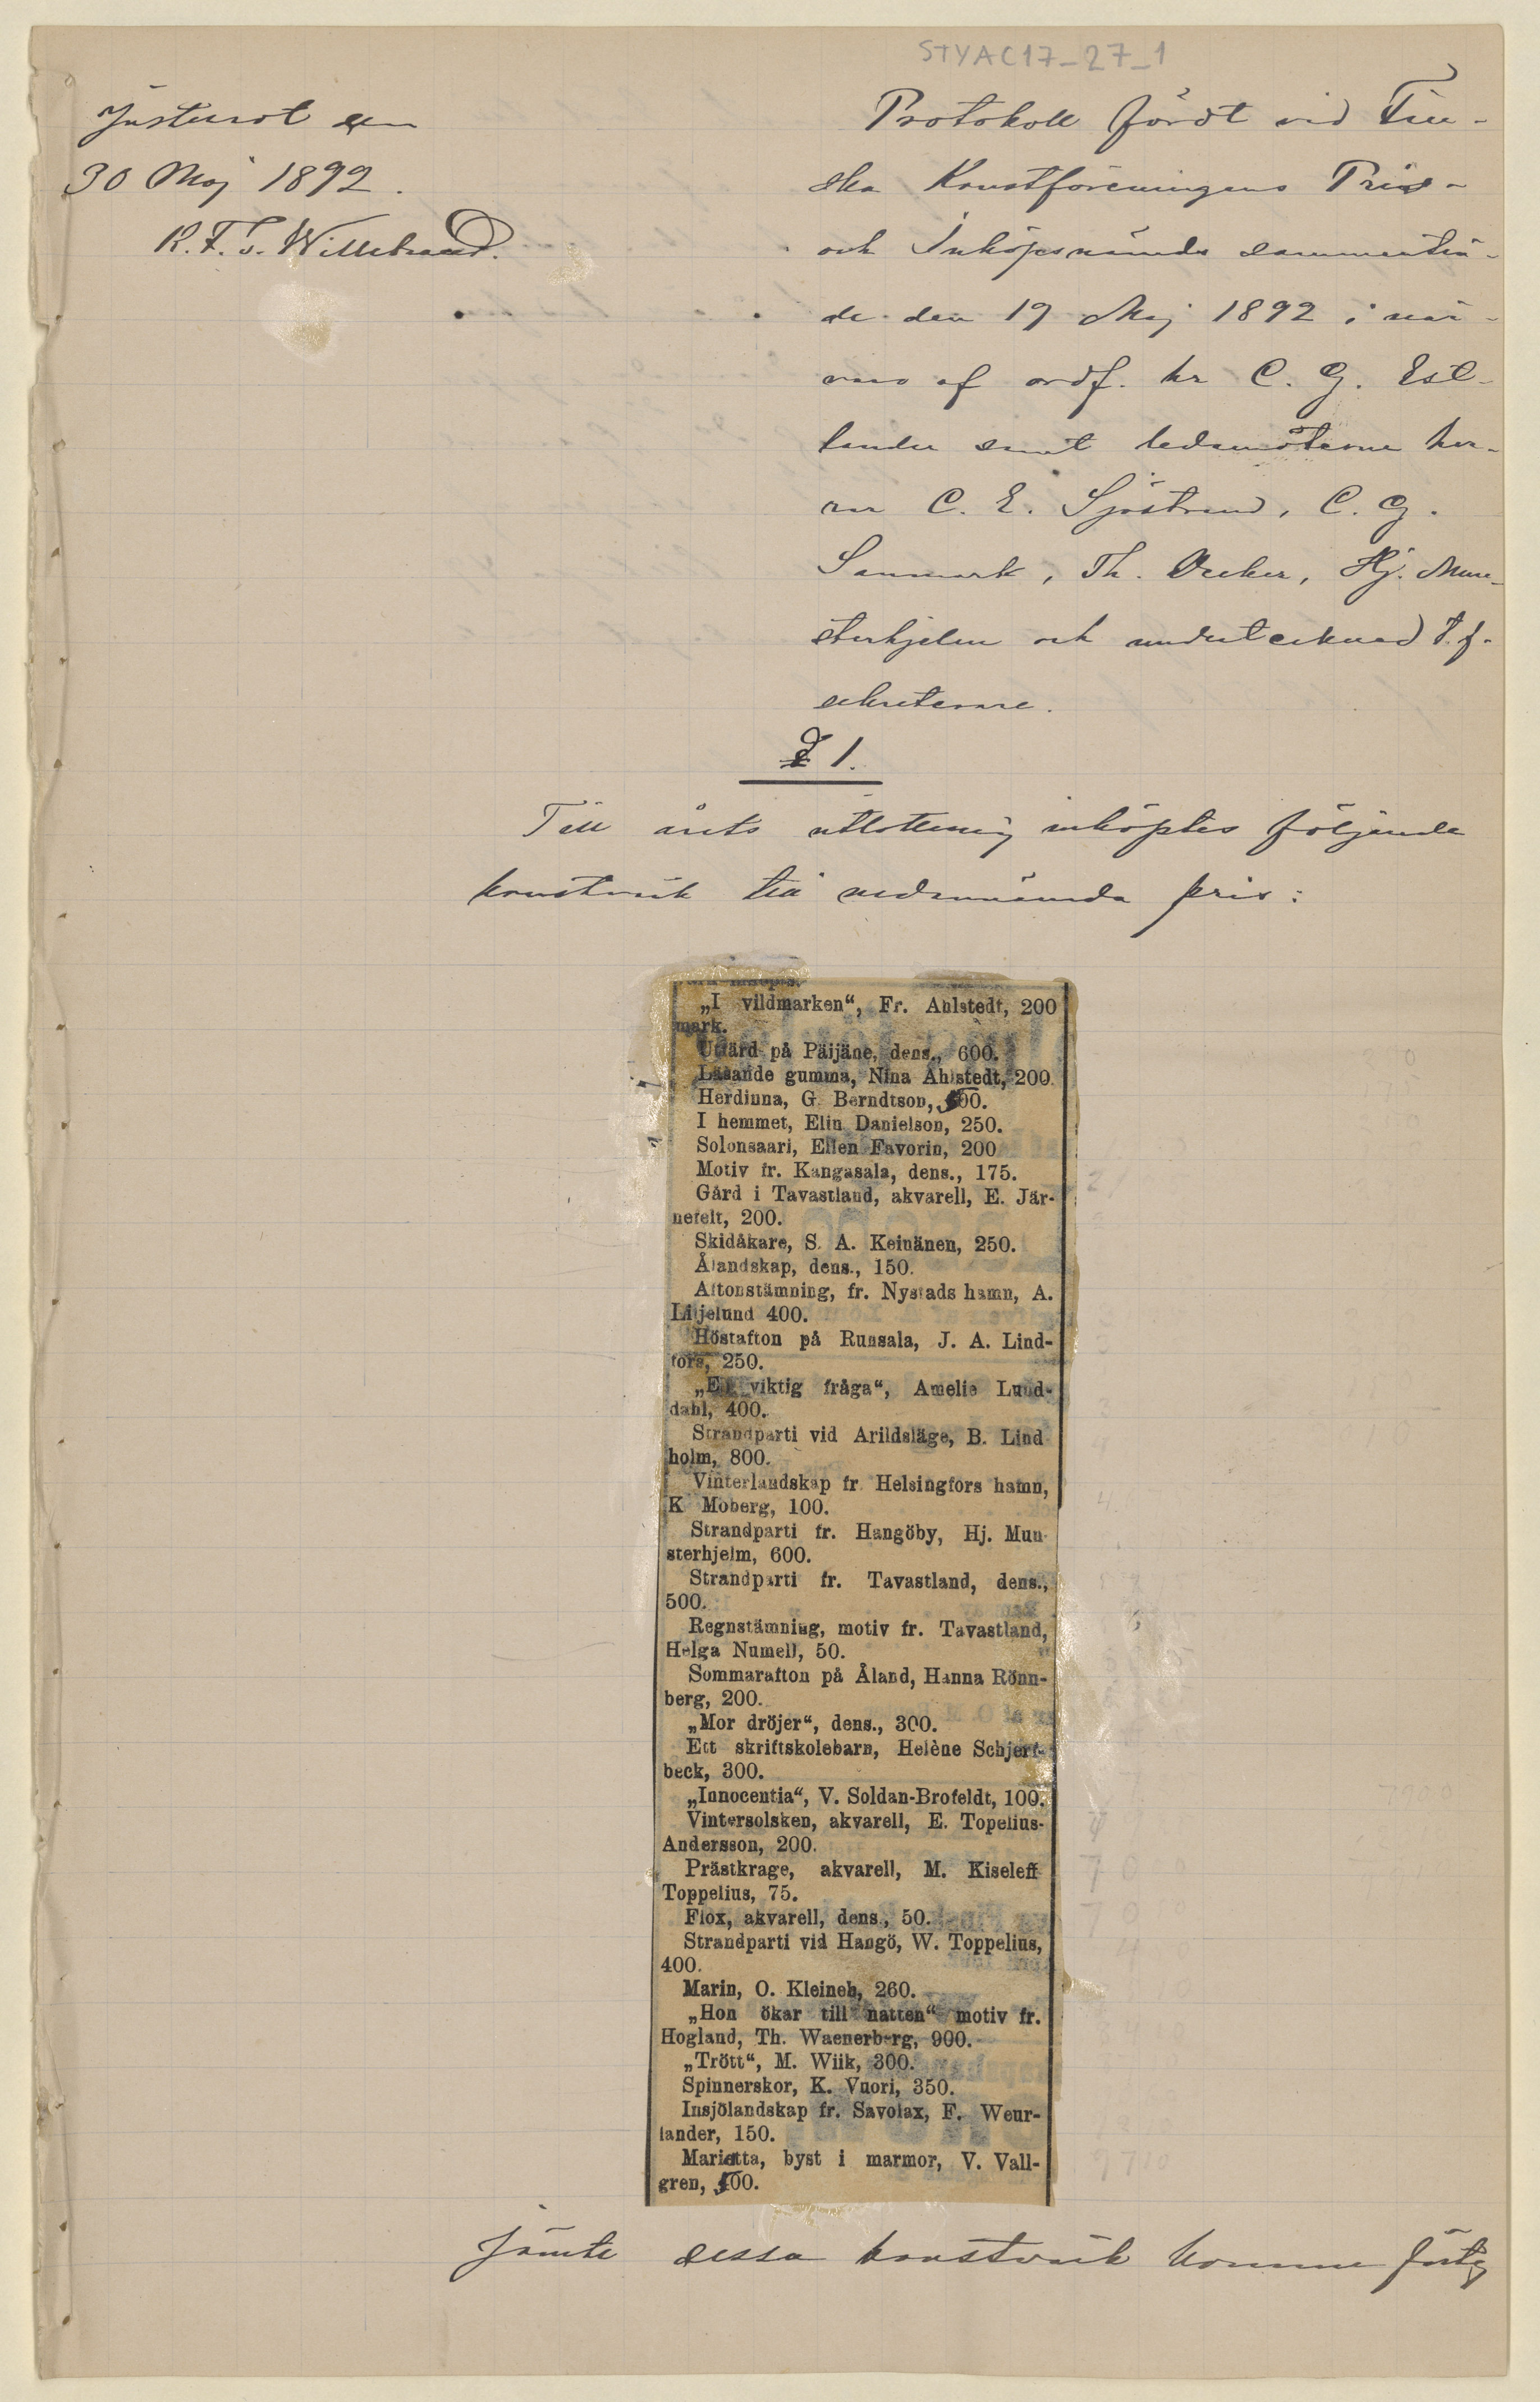 STYAC17_27_1
Justerat den
30 Maj 1892.
R. F. v. Willebrand.
Protokoll fördt vid Fin-
ska Konstföreningens Pris-
och Inköpsnämds sammanträ-
de den 19 Maj 1892 i när-
varo af ordf. hr C. G. Est-
lander samt ledamöterne her-
rar C. E. Sjöstrand, C. G.
Sanmark, Th. Decker, Hj. Mun-
sterhjelm och undertecknad t.f.
sekreterare.
§ 1.
Till årets utlottning inköptes följande
konstverk till nedannämda pris:
„I vildmarken“, Fr. Ahlstedt, 200
mark.
Utfärd på Päijäne, dens., 600.
Läsande gumma, Nina Ahlstedt, 200
Herdinna, G. Berndtson, 500.
I hemmet, Elin Danielson, 250.
Solonsaari, Ellen Favorin, 200
Motiv fr. Kangasala, dens., 175.
Gård i Tavastland, akvarell, E. Jär-
nefelt, 200.
Skidåkare, S. A. Keinänen, 250.
Ålandskap, dens., 150.
Aftonstämning, fr. Nystads hamn, A.
Liljelund 400.
Höstafton på Runsala, J. A. Lind-
fors, 250.
„En viktig fråga“, Amelie Lund-
dahl, 400.
Strandparti vid Arildsläge, B. Lind
holm, 800.
Vinterlandskap fr. Helsingfors hamn,
K Moberg, 100.
Strandparti fr. Hangöby, Hj. Mun-
sterhjelm, 600.
Strandparti fr. Tavastland, dens.,
500.
Regnstämning, motiv fr. Tavastland,
Helga Numell, 50.
Sommarafton på Åland, Hanna Rönn-
berg, 200.
„Mor dröjer“, dens., 300.
Ett skriftskolebarn, Helène Schjerf-
beck, 300.
„Innocentia“, V. Soldan-Brofeldt, 100.
Vintersolsken, akvarell, E. Topelius-
Andersson, 200.
Prästkrage, akvarell, M. Kiseleff
Toppelius, 75.
Flox, akvarell, dens., 50.
Strandparti vid Hangö, W. Toppelius,
400.
Marin, O. Kleineh, 260.
„Hon ökar till natten“ motiv fr.
Hogland, Th. Waenerberg, 900.
„Trött“, M. Wiik, 300.
Spinnerskor, K. Vuori, 350.
Insjölandskap fr. Savolax, F. Weur-
lander, 150.
Marietta, byst i marmor, V. Vall-
gren, 500.
Jämte dessa konstverk komme förty